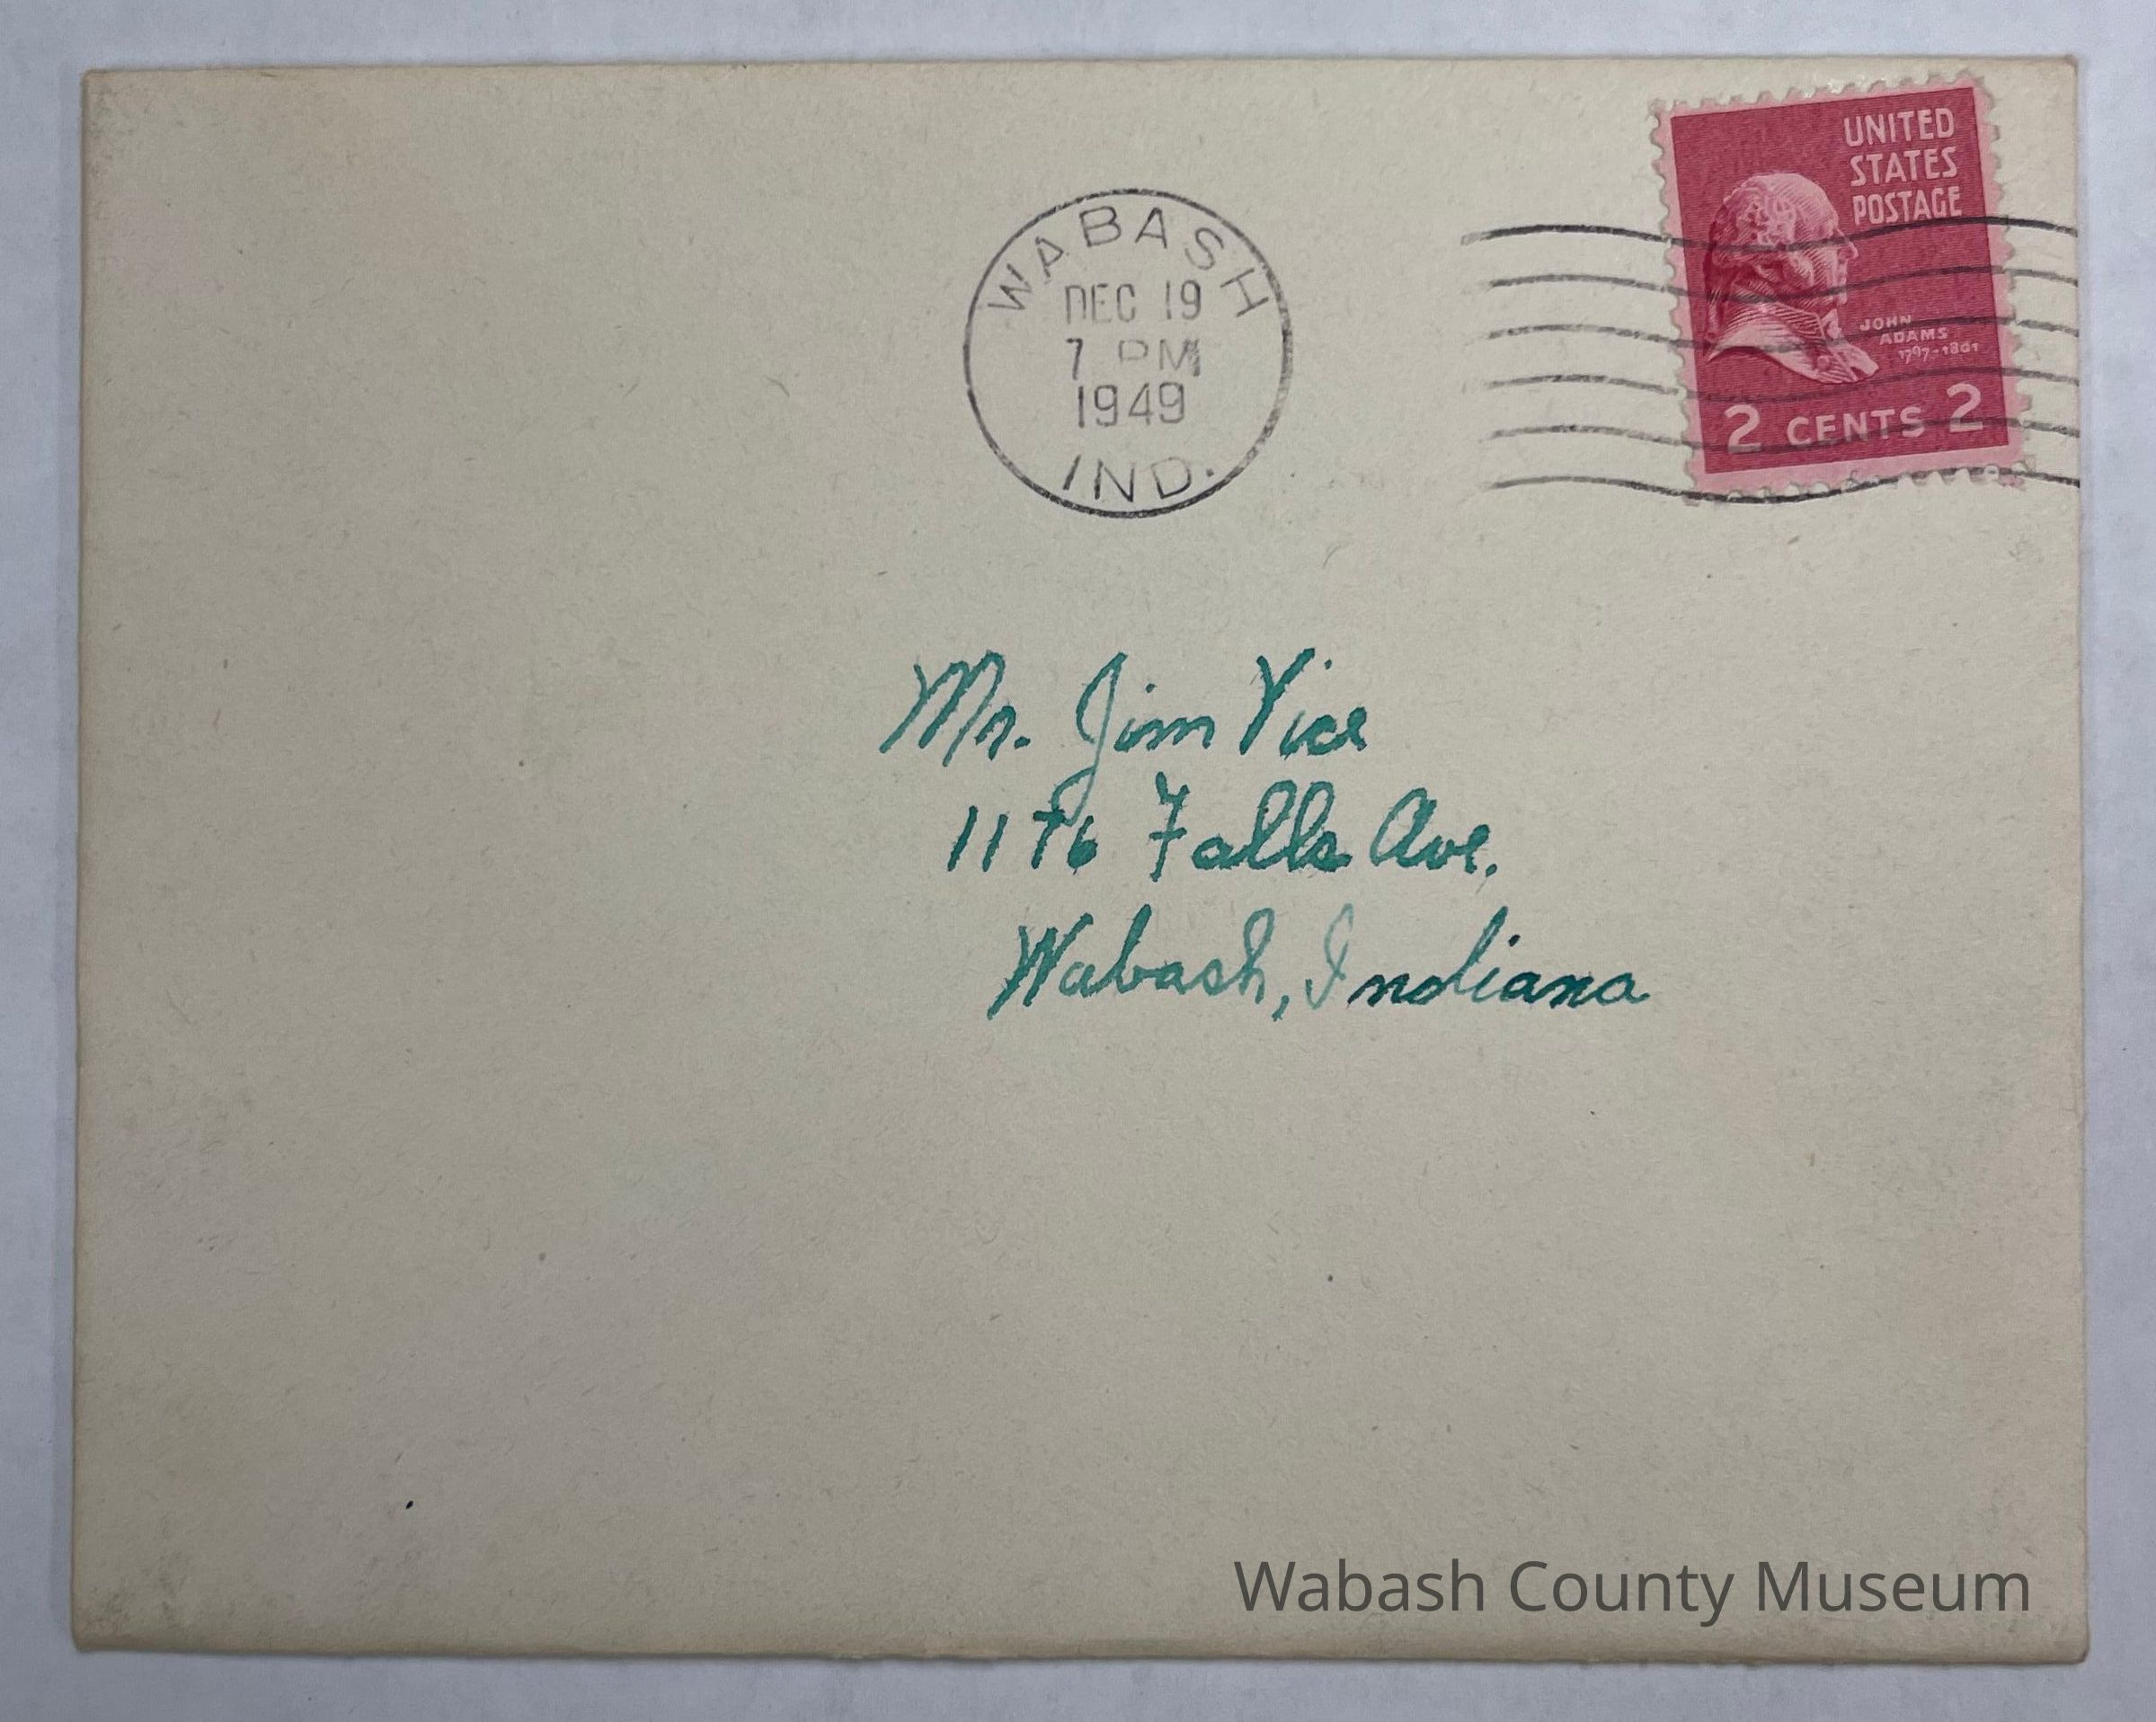 WABASH
DEC 19
7 PM
1949
IND.
UNITED
STATES
POSTAGE
JOHN
ADAMS
1797-1801
2 CENTS 2
Mr. Jim Vice
1176 Falls Ave.
Wabash, Indiana
Wabash County Museum